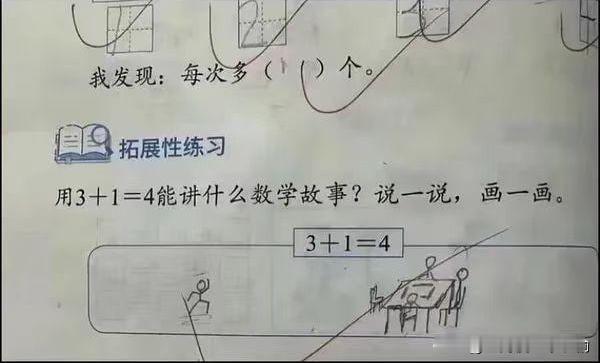 2
3
我发现：每次多（1）个。
拓展性练习
用3+1=4能讲什么数学故事？说一说，画一画。
3+1=4